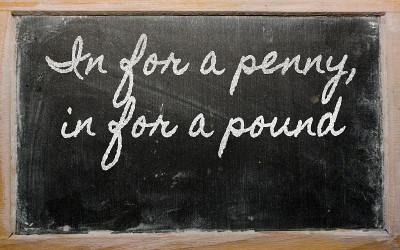 In for a penny,
in for a pound